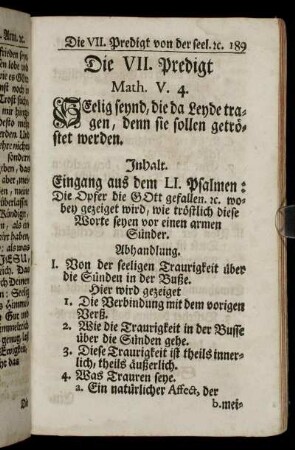 Die VII. Predigt von der seel. ꝛc. 189
Die VII. Predigt
Math. V. 4.
Seelig seynd, die da Leyde tra-
gen, denn sie sollen getrö-
stet werden.
Inhalt.
Eingang aus dem LI. Psalmen:
Die Opfer die GOtt gefallen. ꝛc. wo-
bey gezeiget wird, wie tröstlich diese
Worte seyen vor einen armen
Sünder.
Abhandlung.
I. Von der seeligen Traurigkeit über
die Sünden in der Buße.
Hier wird gezeiget
1. Die Verbindung mit dem vorigen
Verß.
2. Wie die Traurigkeit in der Busse
über die Sünden gehe.
3. Diese Traurigkeit ist theils inner-
lich, theils äußerlich.
4. Was Trauren seye.
a. Ein natürlicher Affect, der
b. mei-